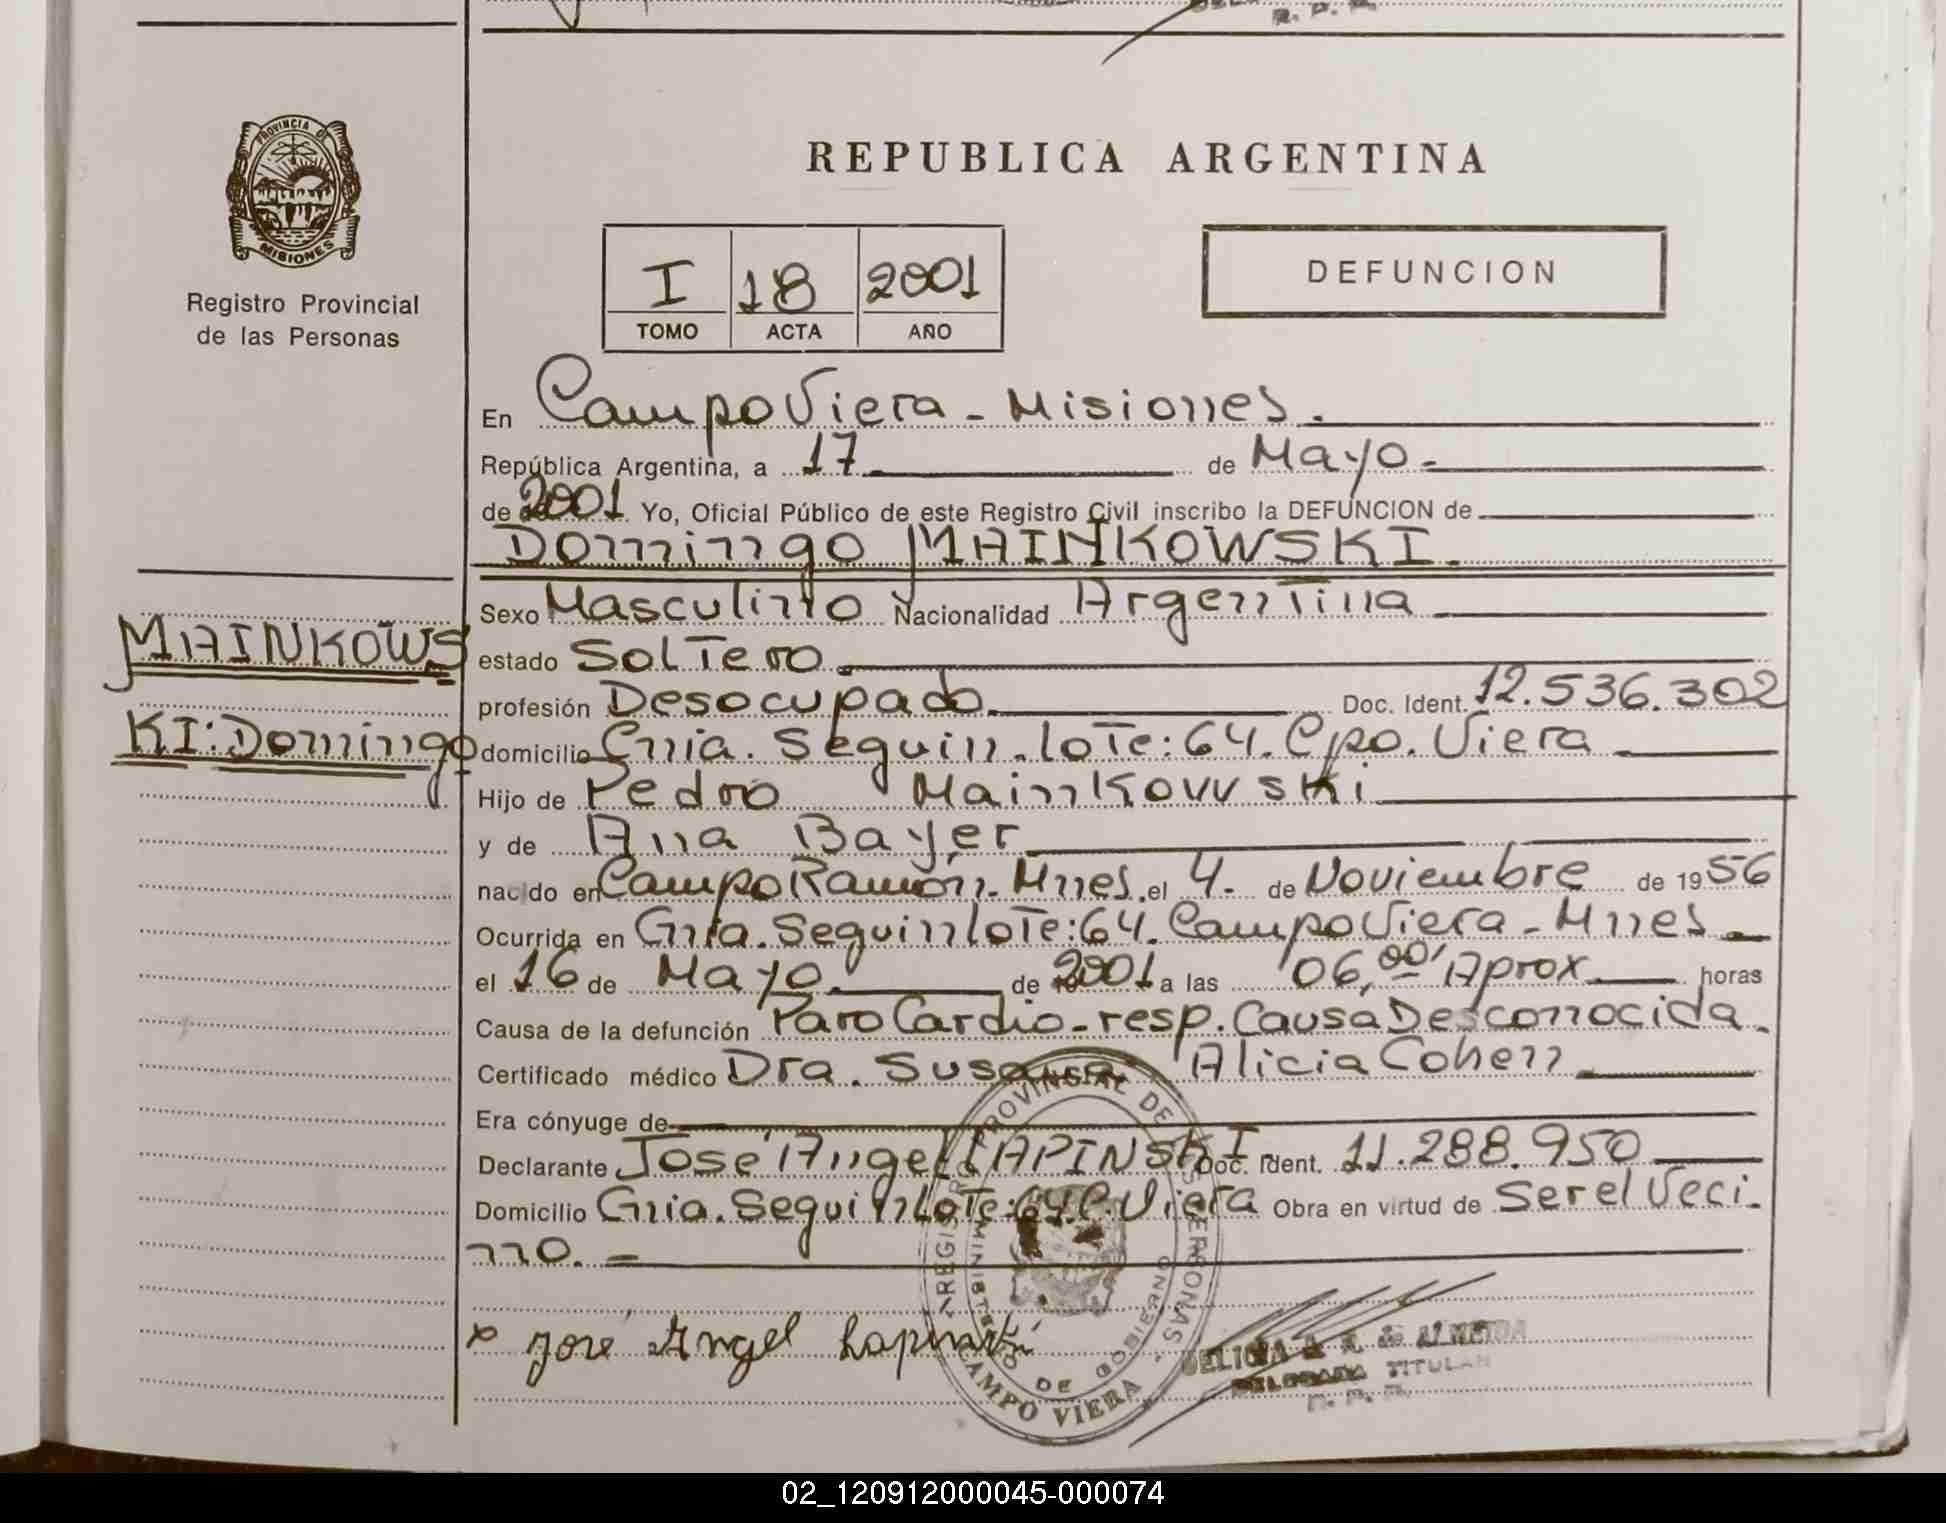 R. P. P.
PROVINCIA DE
MISIONES
Registro Provincial
de las Personas
REPUBLICA ARGENTINA
I 18 2001
TOMO ACTA AÑO
DEFUNCION
En Campo Viera - Misiones.
República Argentina, a 17 de Mayo.-
de 2001 Yo, Oficial Público de este Registro Civil inscribo la DEFUNCION de
Domingo MAINKOWSKI.
MAINKOWS
KI: Domingo
Sexo Masculino Nacionalidad Argentina
estado Soltero.
profesión Desocupado. Doc. Ident. 12.536.302
domicilio Cnia. Seguin. lote: 64. Cpo. Viera
Hijo de Pedro Mainkowski
y de Ana Bayer
nacido en Campo Ramón. Mnes. el 4. de Noviembre de 1956
Ocurrida en Cnia. Seguin lote: 64. Campo Viera - Mnes.
el 16 de Mayo. de 2001 a las 06,00' Aprox. horas
Causa de la defunción Paro Cardio-resp. Causa Desconocida.
Certificado médico Dra. Susana Alicia Cohen
Era cónyuge de
Declarante José Angel LAPINSKI. Doc. Ident. 11.288.950
Domicilio Cnia. Seguin Lote: 64. C. Viera Obra en virtud de Ser el Veci-
no. -
x José Angel Lapinski
REGISTRO PROVINCIAL DE LAS PERSONAS
MINISTERIO DE GOBIERNO
CAMPO VIERA
DE ALMEIDA
DELEGADA TITULAR
R. P. P.
02_120912000045-000074